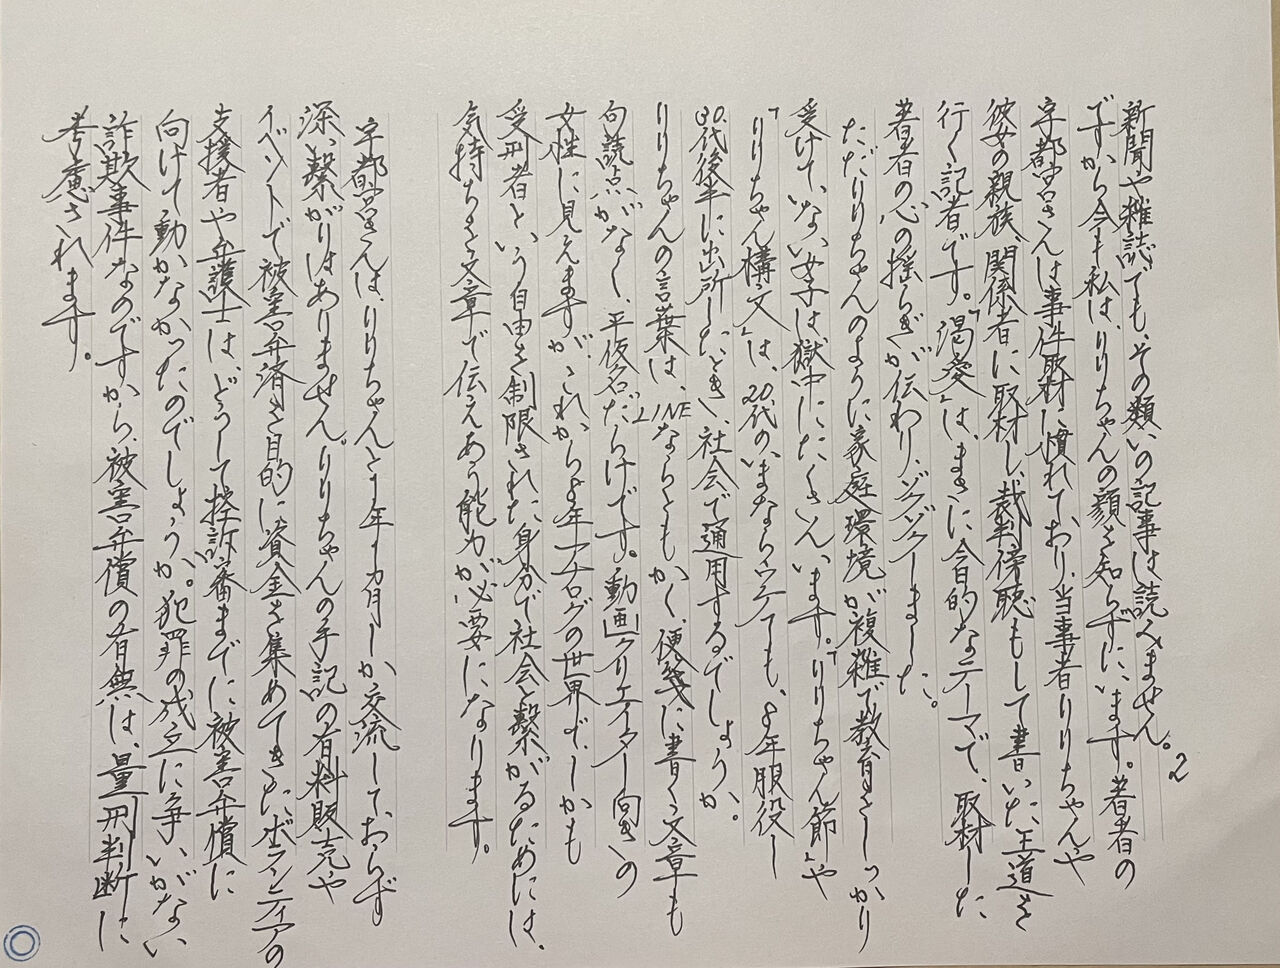 2
新聞や雑誌でも、その類いの記事は読みません。
ですから今も私は、りりちゃんの顔を知らずにいます。著者の
宇都宮さんは事件取材に慣れており、当事者りりちゃんや
彼女の親族、関係者に取材し、裁判傍聴もして書いた王道を
行く記者です。「渇愛」は、まさに今日的なテーマで、取材した
著者の心の揺らぎが伝わり、ゾクゾクしました。
ただりりちゃんのように家庭環境が複雑で教育をしっかり
受けていない女子は獄中にたくさんいます。「りりちゃん節」や
「りりちゃん構文」は、20代のいまならウケても、8年服役し
30代後半に出所したとき、社会で通用するでしょうか。
りりちゃんの言葉は、LINEならともかく、便箋に書く文章も
句読点がなく、平仮名だらけです。動画クリエイター向きの
女性に見えますが、これから8年アナログの世界で、しかも
受刑者という自由を制限された身分で社会と繋がるためには、
気持ちを文章で伝えあう能力が必要になります。
宇都宮さんは、りりちゃんと1年1カ月しか交流しておらず
深い繋がりはありません。りりちゃんの手記の有料販売や
イベントで被害弁済を目的に資金を集めてきたボランティアの
支援者や弁護士は、どうして控訴審までに被害弁償に
向けて動かなかったのでしょうか。犯罪の成立に争いがない
詐欺事件なのですから、被害弁償の有無は、量刑判断に
考慮されます。